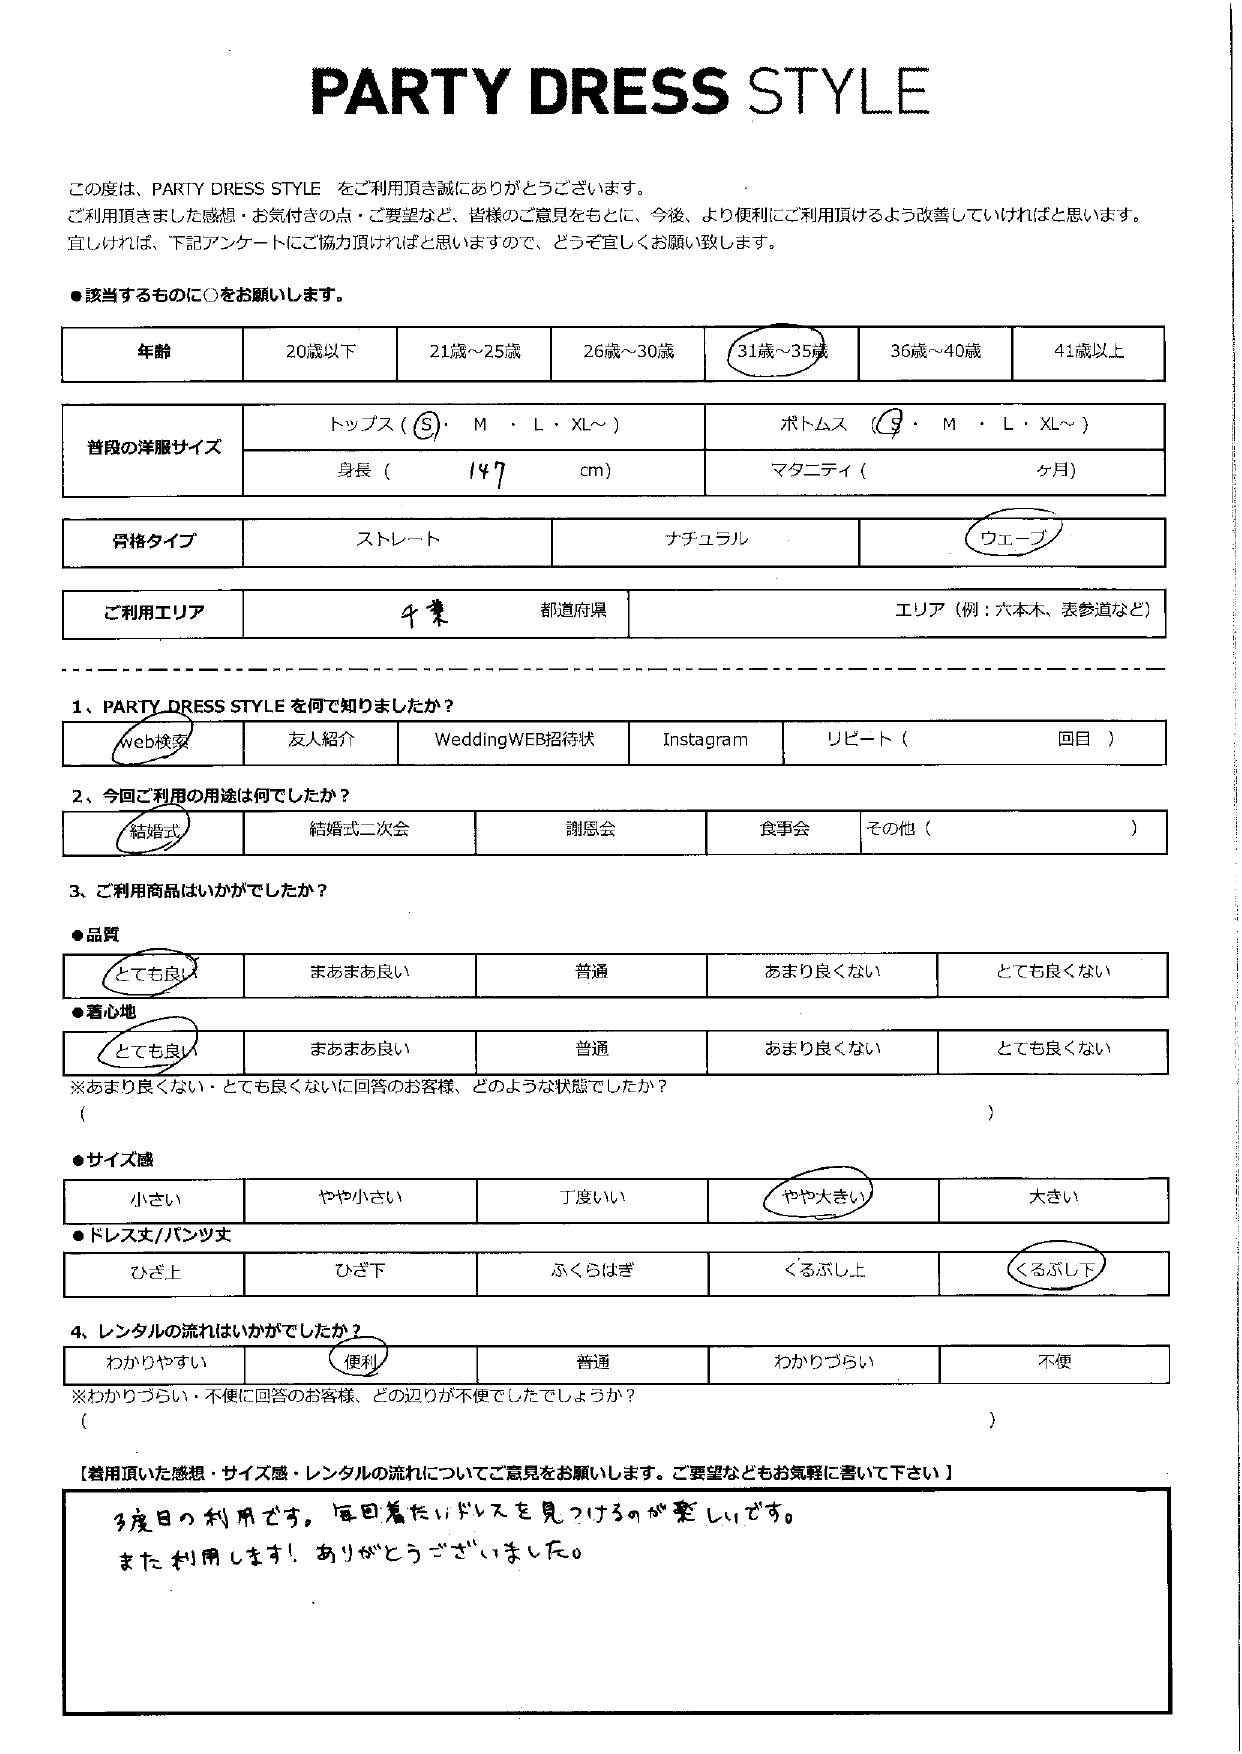 PARTY DRESS STYLE
この度は、PARTY DRESS STYLE をご利用頂き誠にありがとうございます。
ご利用頂きました感想・お気付きの点・ご要望など、皆様のご意見をもとに、今後、より便利にご利用頂けるよう改善していければと思います。
宜しければ、下記アンケートにご協力頂ければと思いますので、どうぞ宜しくお願い致します。
●該当するものに○をお願いします。
年齢 20歳以下 21歳～25歳 26歳～30歳 31歳～35歳 36歳～40歳 41歳以上
普段の洋服サイズ トップス ( S ・ M ・ L ・ XL～ ) ボトムス ( S ・ M ・ L ・ XL～ )
身長 ( 147 cm) マタニティ ( ケ月)
骨格タイプ ストレート ナチュラル ウェーブ
ご利用エリア 千葉 都道府県 エリア (例：六本木、表参道など)
1、PARTY DRESS STYLE を何で知りましたか？
web検索 友人紹介 WeddingWEB招待状 Instagram リピート ( 回目 )
2、今回ご利用の用途は何でしたか？
結婚式 結婚式二次会 謝恩会 食事会 その他 ( )
3、ご利用商品はいかがでしたか？
●品質
とても良い まあまあ良い 普通 あまり良くない とても良くない
●着心地
とても良い まあまあ良い 普通 あまり良くない とても良くない
※あまり良くない・とても良くないに回答のお客様、どのような状態でしたか？
( )
●サイズ感
小さい やや小さい 丁度いい やや大きい 大きい
●ドレス丈/パンツ丈
ひざ上 ひざ下 ふくらはぎ くるぶし上 くるぶし下
4、レンタルの流れはいかがでしたか？
わかりやすい 便利 普通 わかりづらい 不便
※わかりづらい・不便に回答のお客様、どの辺りが不便でしたでしょうか？
( )
【着用頂いた感想・サイズ感・レンタルの流れについてご意見をお願いします。ご要望などもお気軽に書いて下さい】
3度目の利用です。毎回着たいドレスを見つけるのが楽しいです。
また利用します！ありがとうございました。